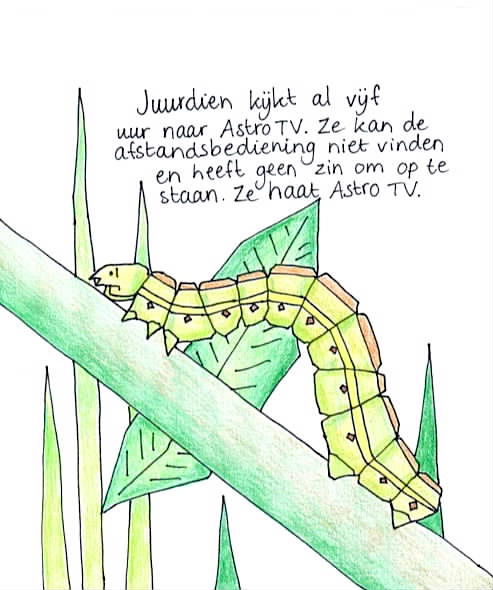 Juurdien kijkt al vijf
uur naar Astro TV. Ze kan de
afstandsbediening niet vinden
en heeft geen zin om op te
staan. Ze haat Astro TV.